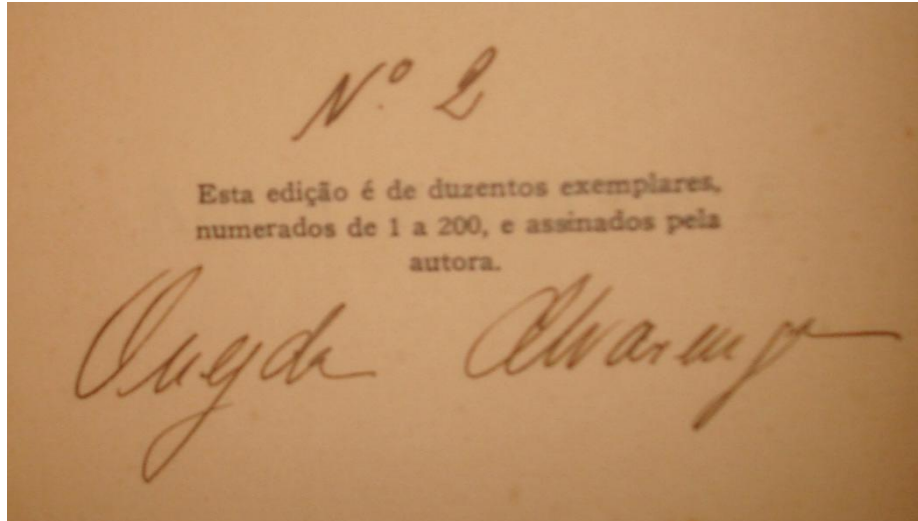 Nº 2
Esta edição é de duzentos exemplares,
numerados de 1 a 200, e assinados pela
autora.
Oneyda Alvarenga